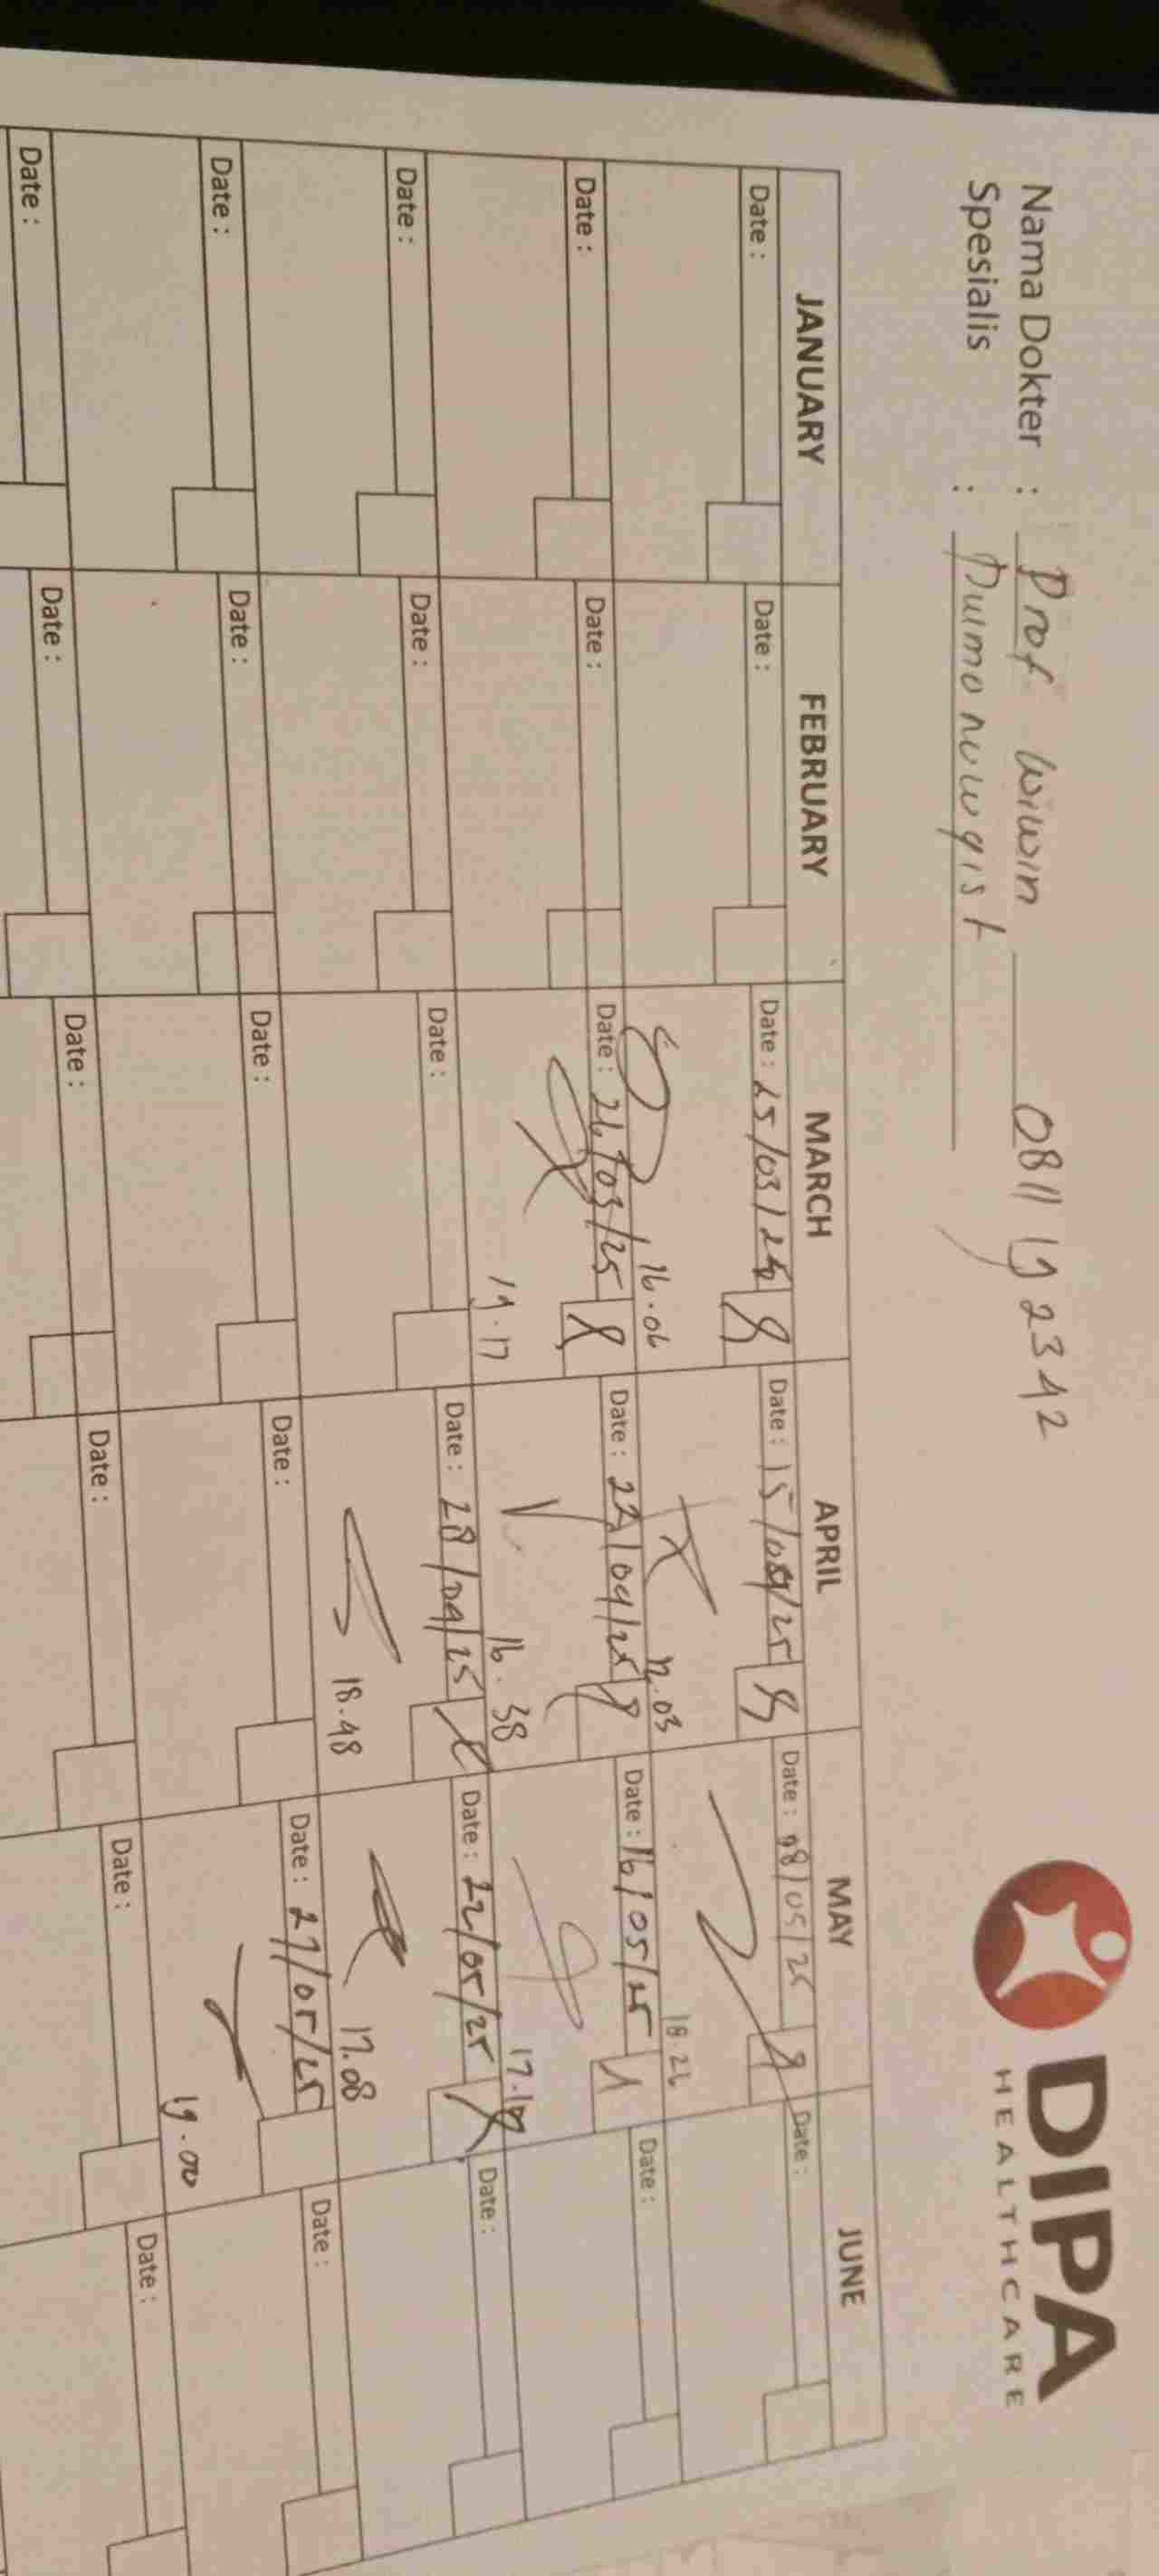 DIPA
HEALTHCARE
Nama Dokter : Prof Wiwin 0811 19 2342
Spesialis :
JANUARY FEBRUARY MARCH APRIL MAY JUNE
Date : Date : Date : 25/03/25 Date : 15/04/25 Date : 08/05/25 Date :
16.06 18.26
Date : Date : Date : 26/03/25 Date : 22/04/25 Date : 16/05/25 Date :
19.17 16.38 17.18
Date : Date : Date : Date : 28/04/25 Date : 22/05/25 Date :
18.48 17.08
Date : Date : Date : Date : Date : 27/05/25 Date :
19.00
Date : Date : Date : Date : Date : Date :